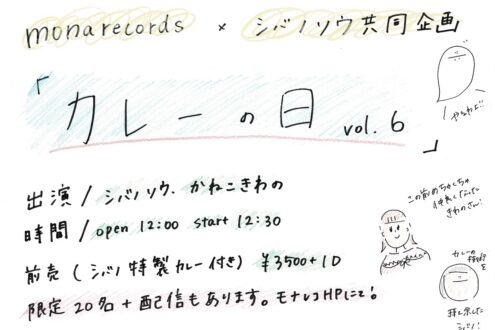 monarecords × シバノソウ共同企画
「カレーの日 vol.6」
やるわよ!!
出演/シバノソウ、かねこきわの
時間/open 12:00 start 12:30
前売(シバノ特製カレー付き) ¥3500+1D
限定20名+配信もあります。モナレコHPにて!
この前めちゃくちゃ
仲良くなった
きわのさん!
カレーの